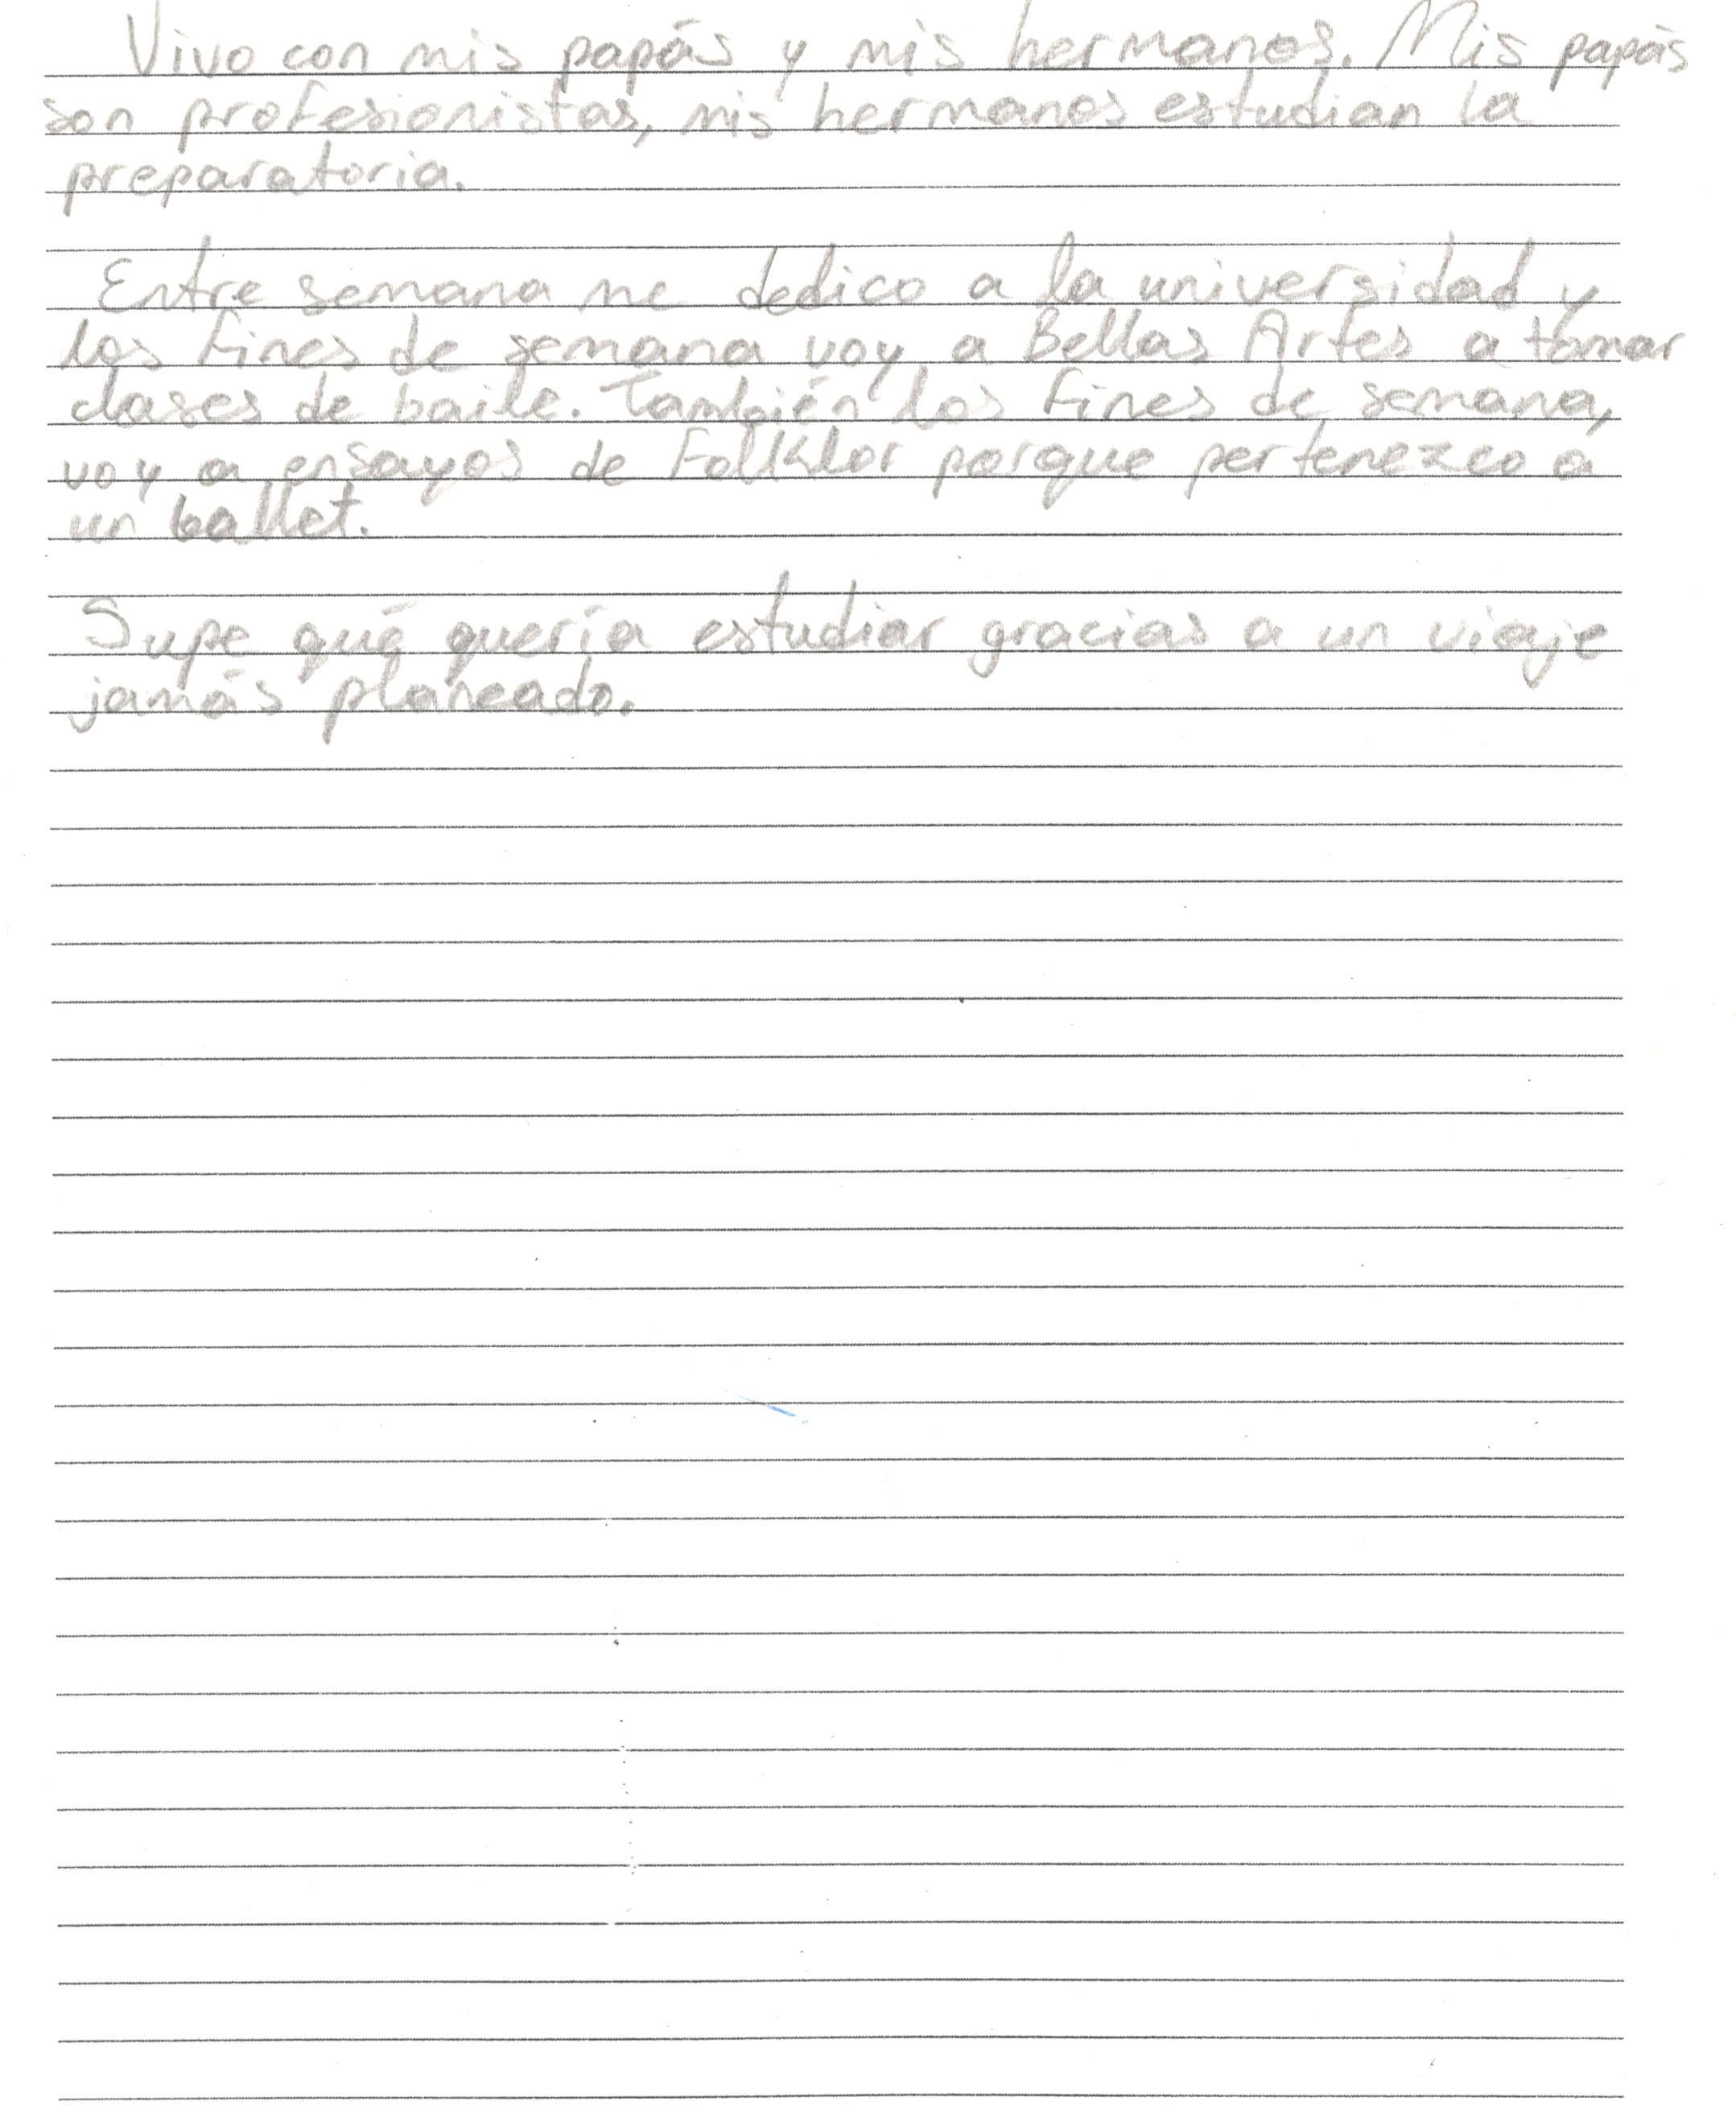 Vivo con mis papás y mis hermanos. Mis papás
son profesionistas, mis hermanos estudian la
preparatoria.
Entre semana me dedico a la universidad y
los fines de semana voy a Bellas Artes a tomar
clases de baile. También los fines de semana,
voy a ensayos de Folklor porque pertenezco a
un ballet.
Supe qué quería estudiar gracias a un viaje
jamás planeado.